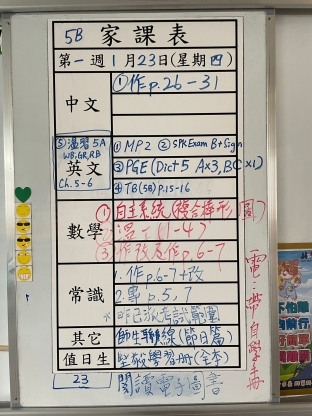 5B 家課表
第一週 1月23日(星期四)
中文
①作p.26-31
⑤溫習5A
WB,GR,RB
Ch.5-6
英文
①MP2 ②SpkExam B+Sign
③PGE(Dict5 Ax3,BCx1)
④TB(5B)p.15-16
數學
①自主系統(複合棒形圖)
②溫T(1-4)
③作改及作p.6-7
常識
1.作p.6-7+改
2.專p.5,7
*昨已派考試範圍
其它
師生聯線(節日篇)
值日生
堅毅學習冊(全本)
23
閱讀電子圖書
電:帶自學冊